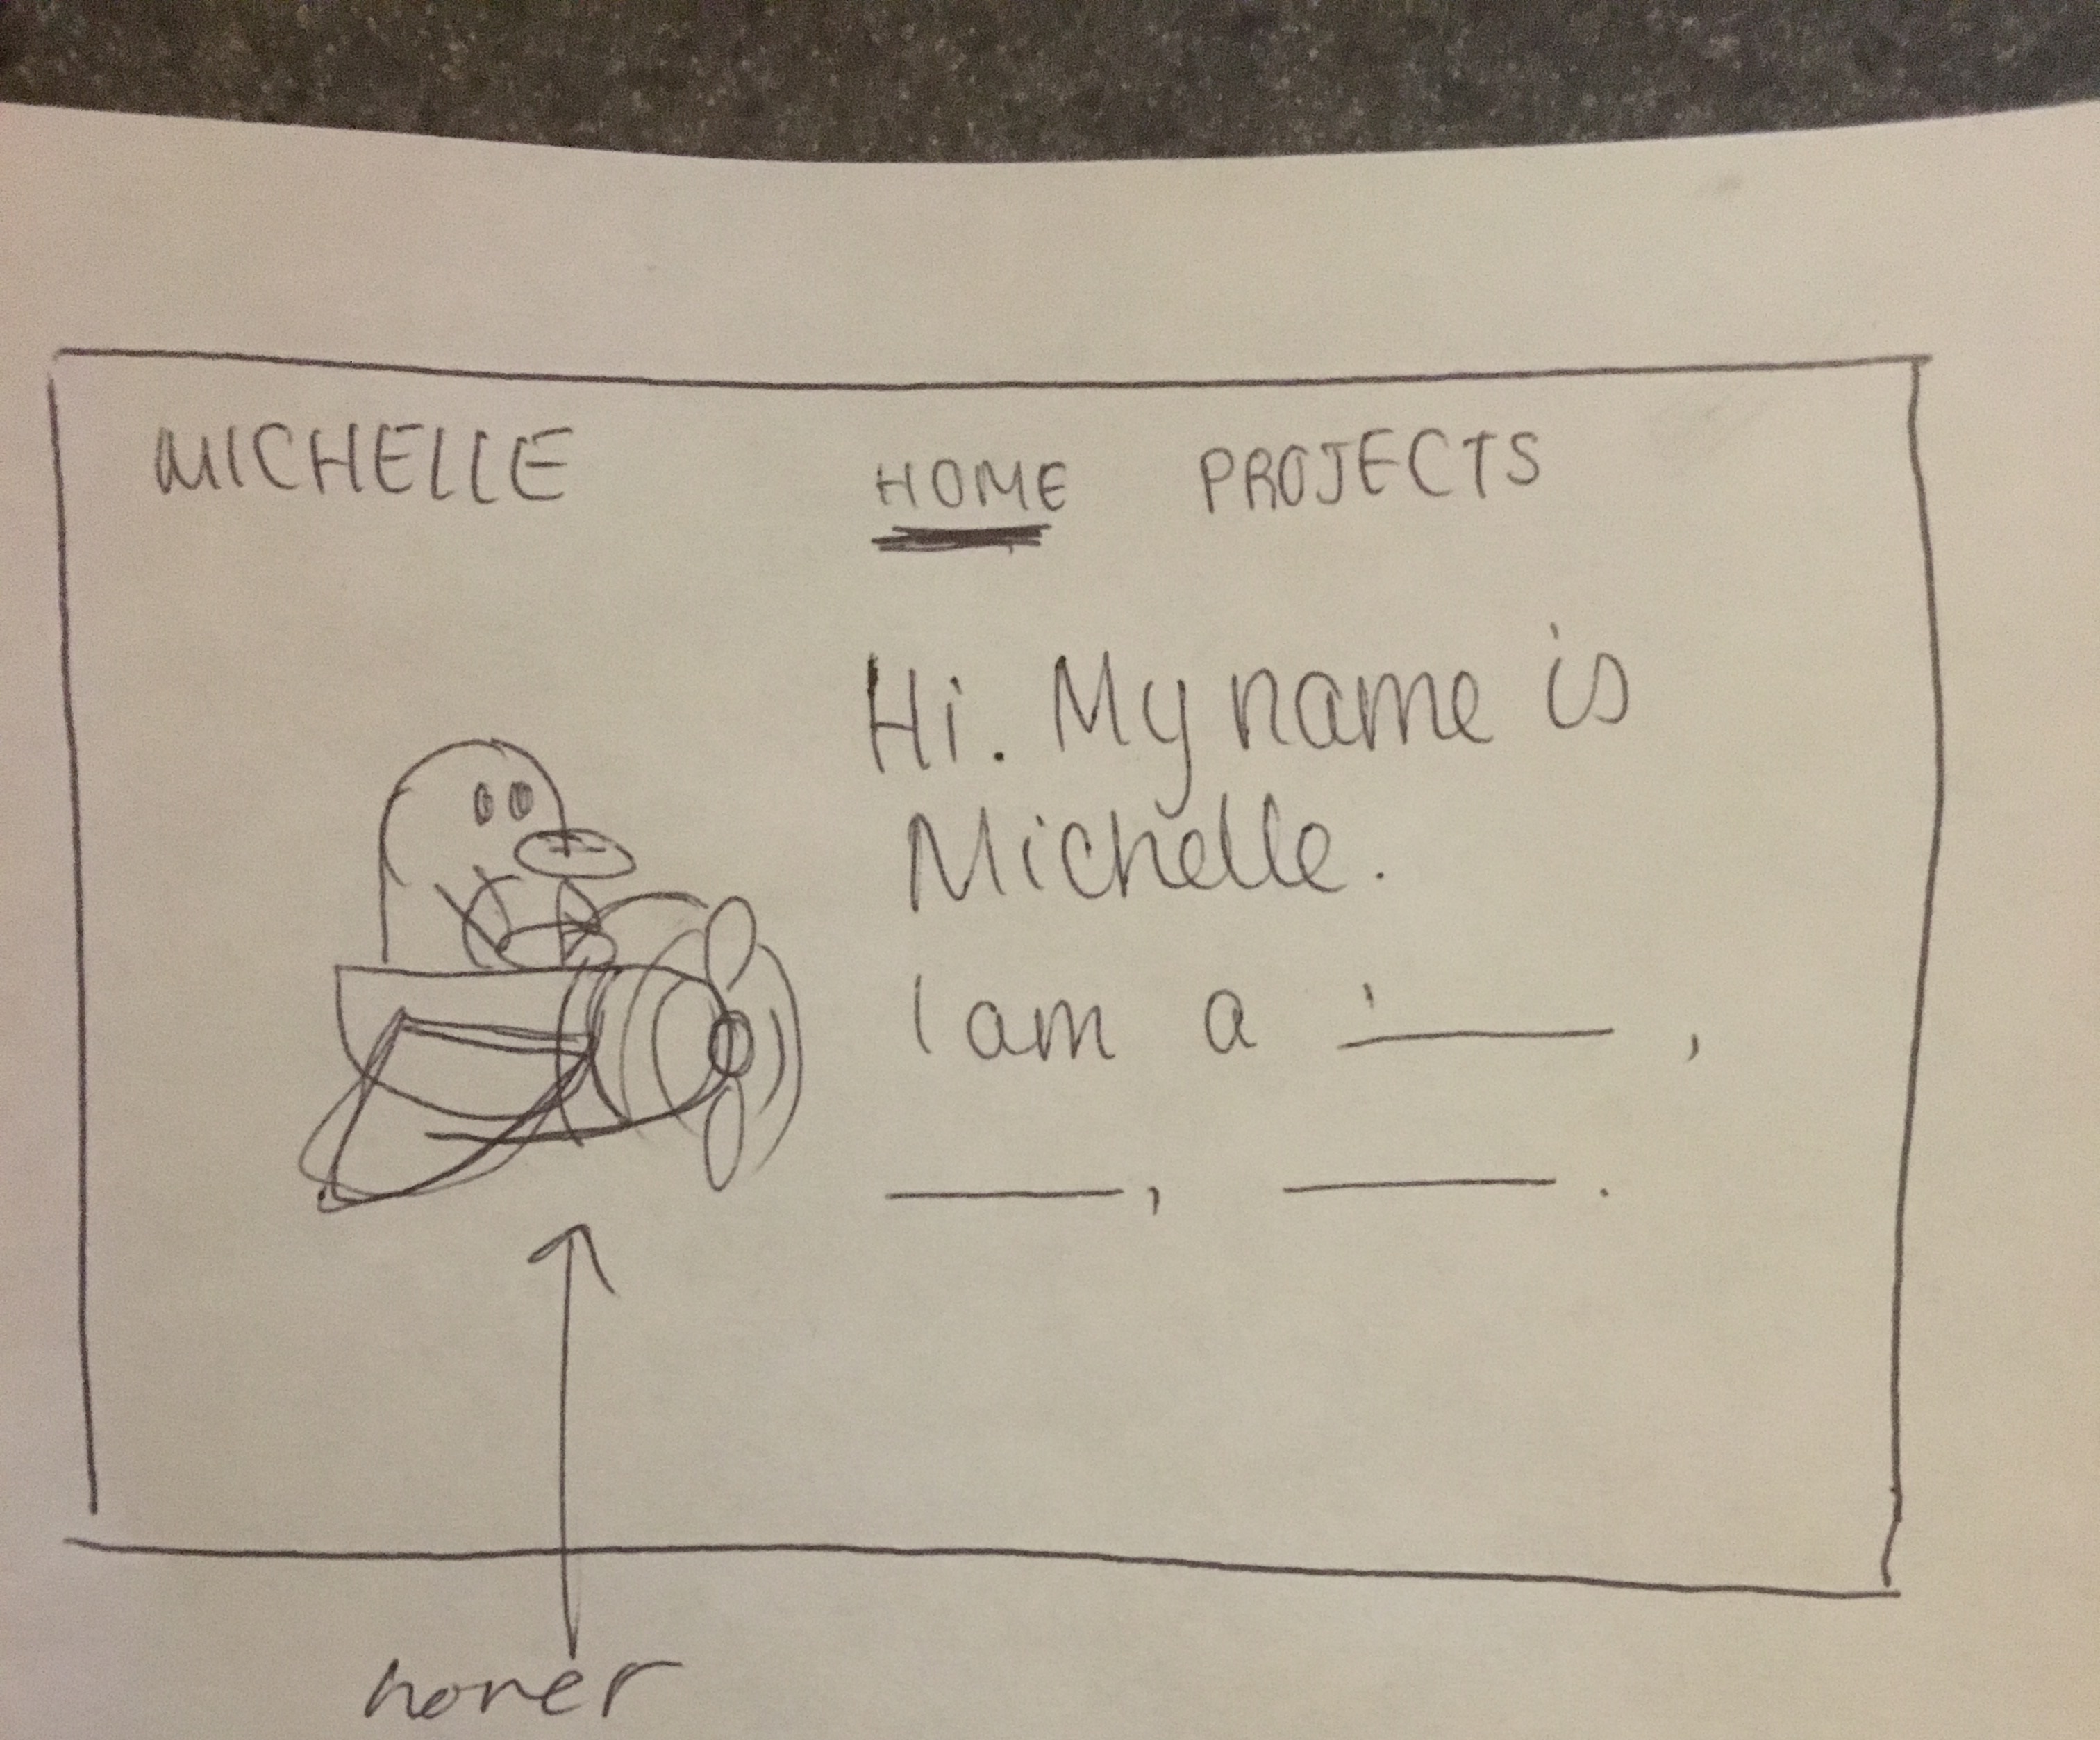 MICHELLE HOME PROJECTS
Hi. My name is
Michelle.
I am a ______ ,
______, ______.
hover